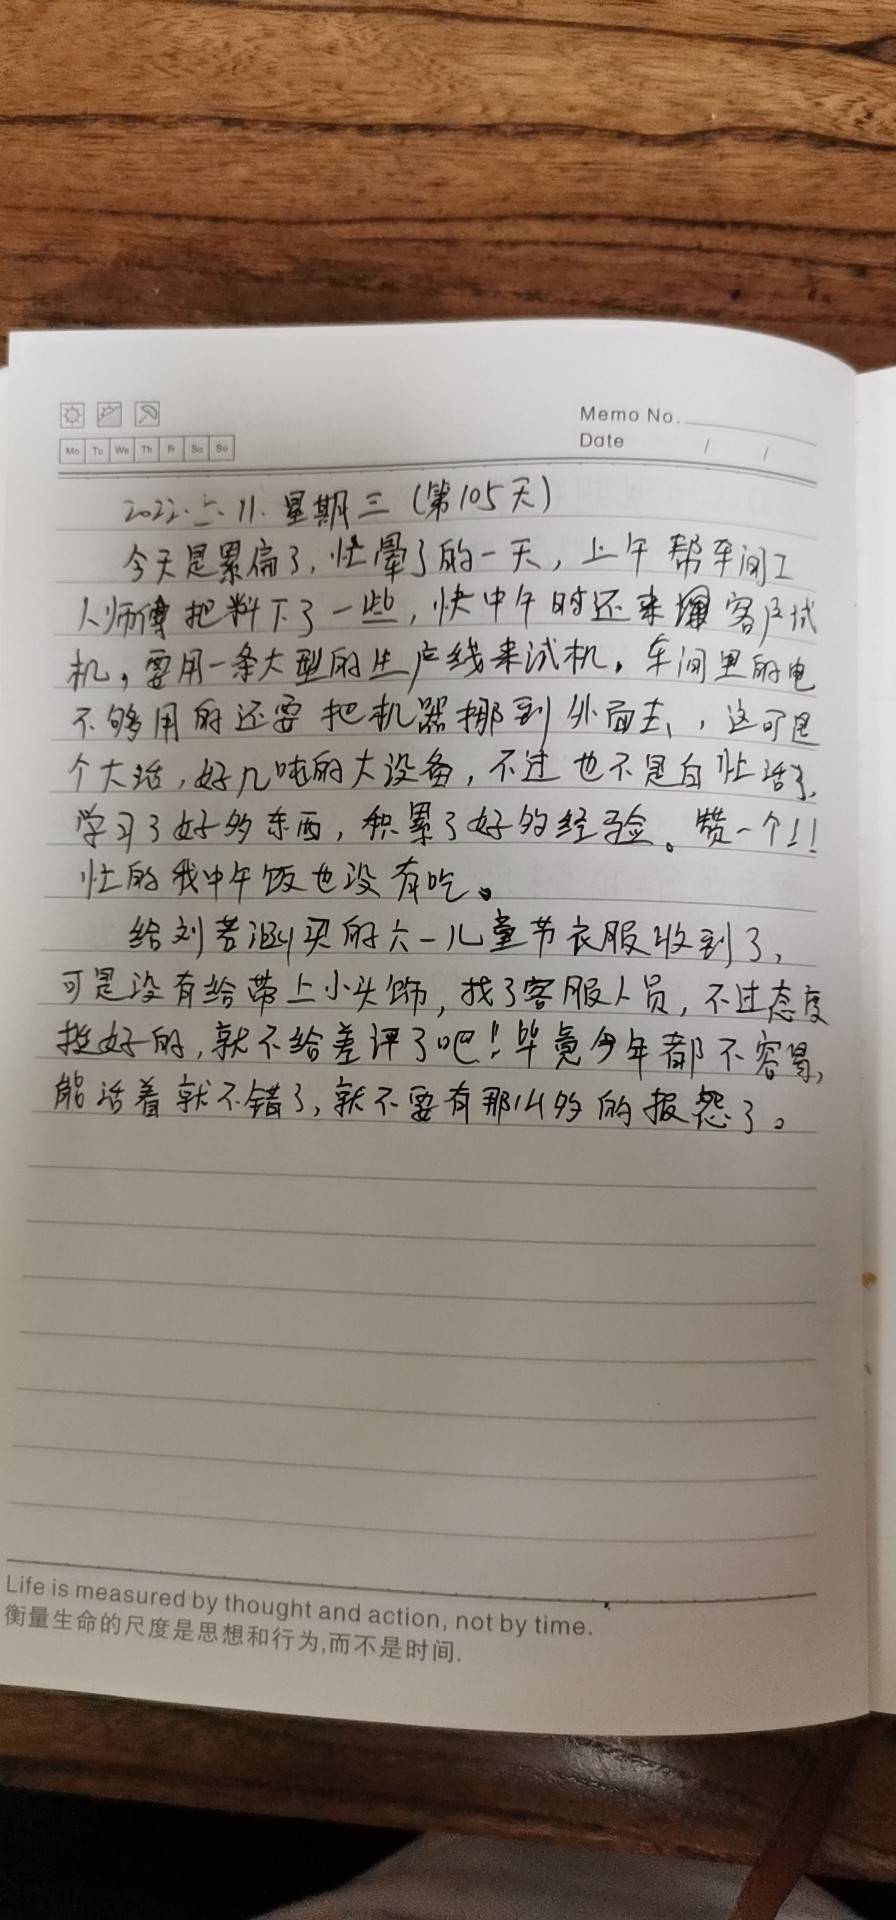 Memo No.
Mo Tu We Th Fr Sa Su
Date / /
2022.五.11.星期三(第105天)
今天是累偏了,忙晕了的一天,上午帮车间工
人师傅把料下了一些,快中午时还来客户试
机,要用一条大型的生产线来试机。车间里的电
不够用的还要把机器挪到外面去,这可是
个大活,好几吨的大设备,不过也不是白忙活了,
学习了好多东西,积累了好的经验。赞一个!!
忙的我中午饭也没有吃。
给刘若涵买的六一儿童节衣服收到了,
可是没有给带上小头饰,找了客服人员,不过态度
挺好的,就不给差评了吧!毕竟今年都不容易,
能活着就不错了,就不要有那么多的报怨了。
Life is measured by thought and action, not by time.
衡量生命的尺度是思想和行为,而不是时间.